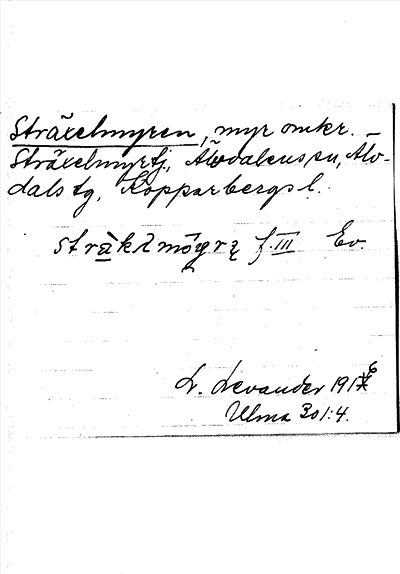 Sträxelmyren, myr omkr. –
Sträxelmyrtj., Älvdalens sn, Älv-
dals tg, Kopparbergs l.
f. III Ev.
L. Levander 191
Ulma 301:4.